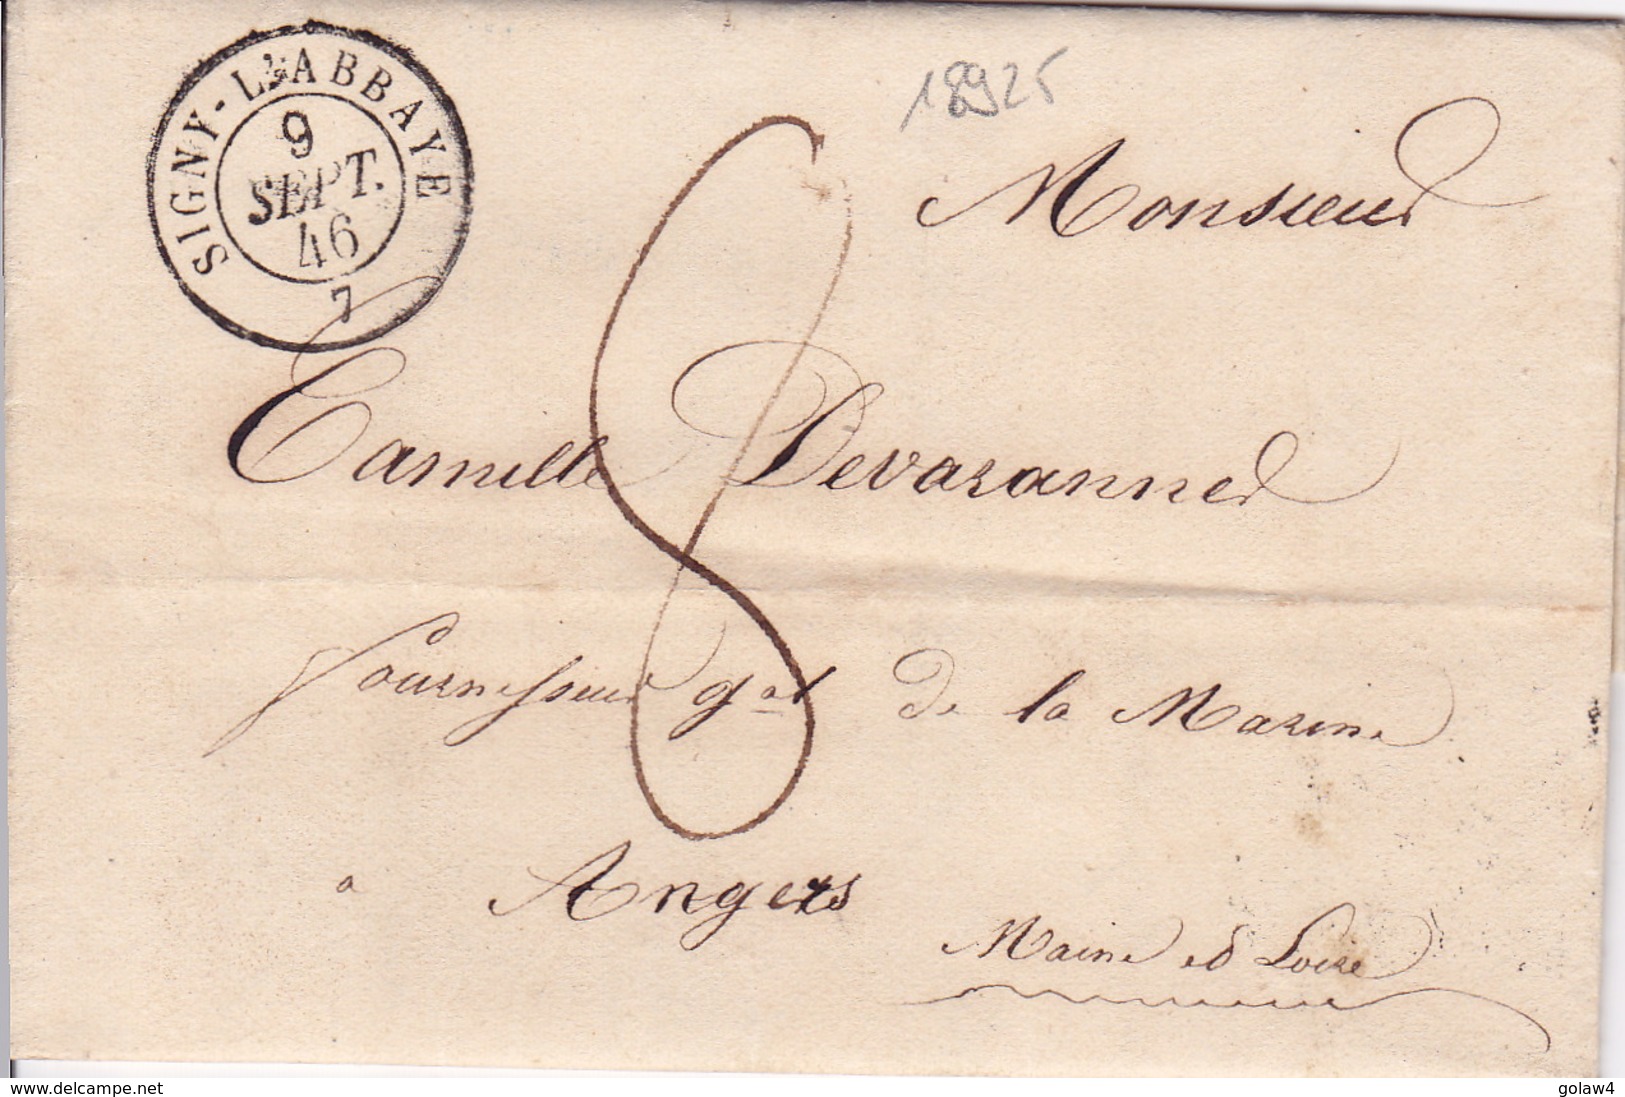 SIGNY-L'ABBAYE
9
SEPT.
46
7
18925
8
Monsieur
Camille Devaranne
fournisseur gal de la Marine
a Angers
Maine et Loire
www.delcampe.net
golaw4